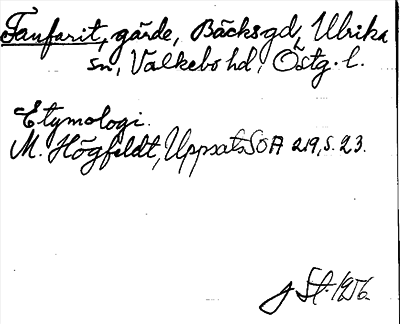 Fanfarit, gärde, Bäcksgd, Ulrika
sn, Valkebo hd, Östg. l.
Etymologi.
M. Högfeldt, Uppsats SOA 219, s. 23.
St. 1956